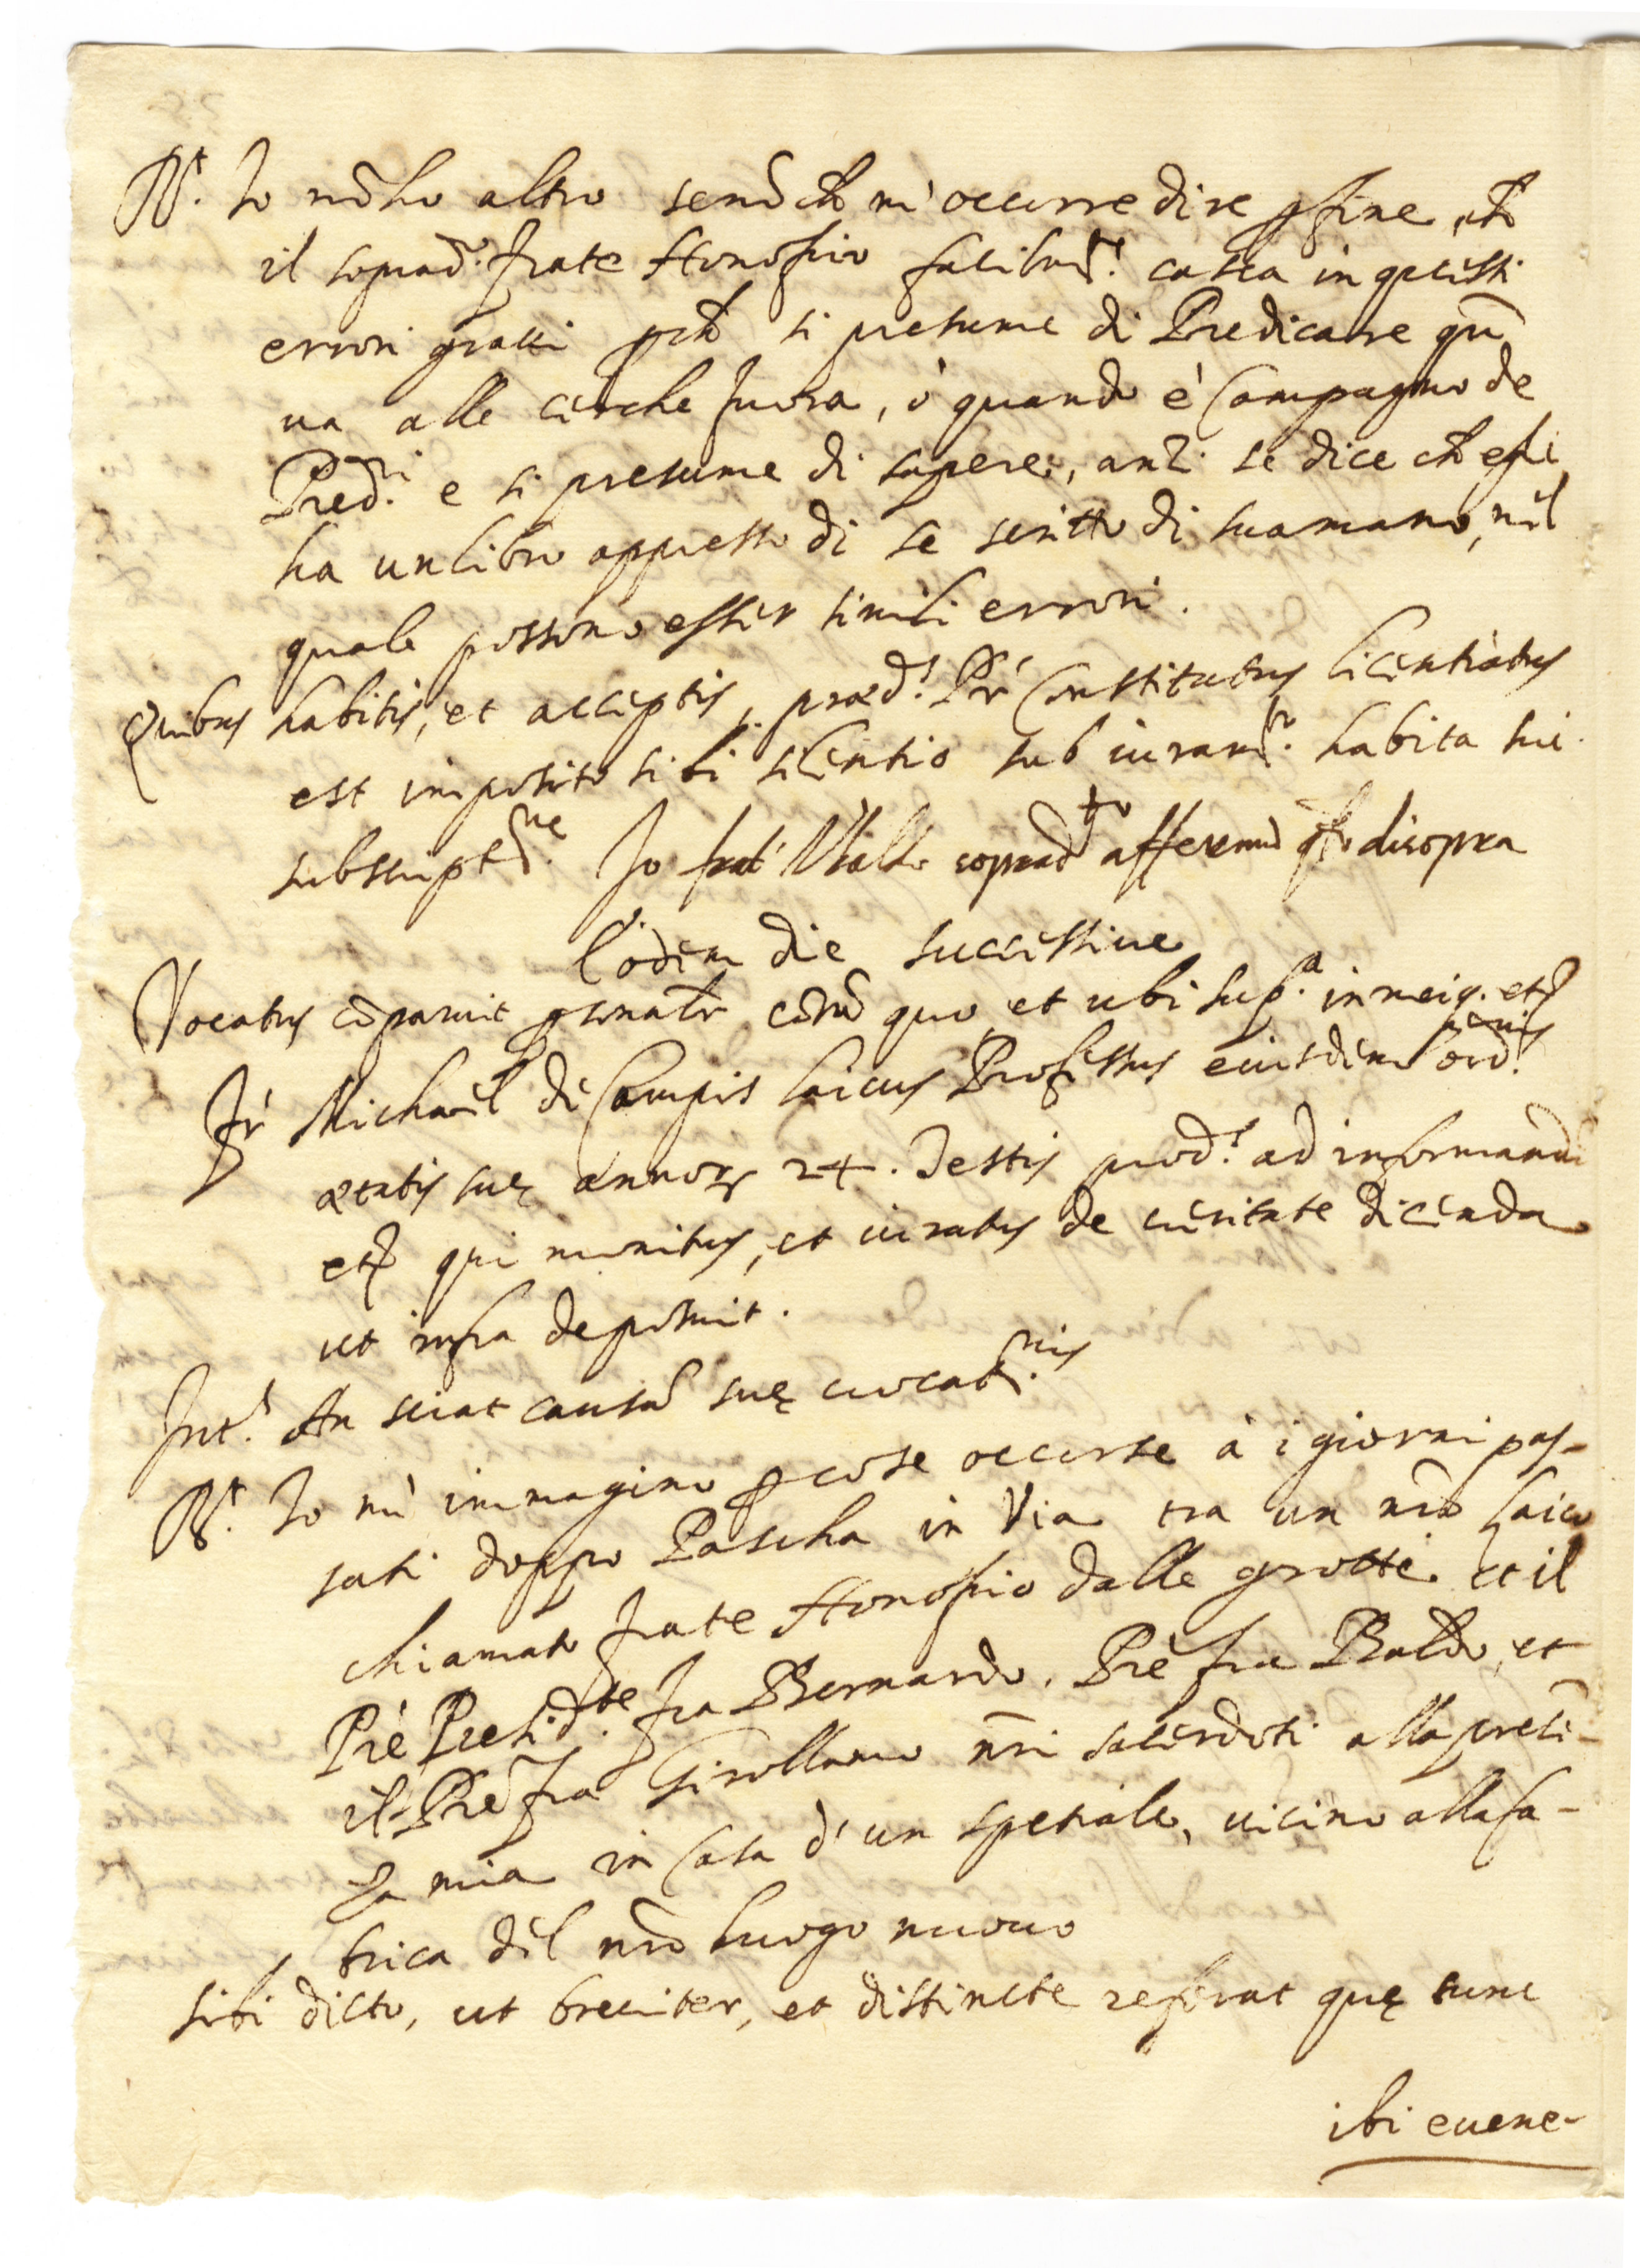 Rt. Io nō ho altro senō ch̄ m'occurre dire p fine, ch̄
il soprad.o frate Honofrio facilmt.e casca in questi
errori grassi pch̄ si presume di Predicare qn̄
va alle cerche fuora, ò quando è Compagno de
Pred.ri e si presume di sapere, anzi se dice ch̄ egli
ha un libro appresso di se scritto di sua mano, nel
quale possono esser simili errori.
Quibus habitis, et acceptis, præd.s Pr̄ Constitutus licentiatus
est imposito sibi silentio sub iuram.to habita sui
subscript.ne Io frat' Ubaldo soprad.to affermo qto di sopra
Eodem die successive
Vocatus cōparuit psonalr corā quo et ubi sup.a in meiq. etc
Fr̄ Michael de Campis laicus Professus eiusdem ord.nis
ætatis suę annorum 24. Testis prod.s ad informandū
etc qui monitus, et iuratus de veritate dicenda
ut infra deposuit.
Int.s An sciat causā suę vocat.nis
Rt. Io mi immagino p cose occurse à i giorni pas-
sati doppo Pascha in Via tra un nrō laico
chiamato frate Honofrio dalle grotte et il
Prē Presid.te fra Bernardo, Prē fra Baldo, et
il Prē fra Girollamo nrī sacerdoti alla presē-
za mia in Casa d'un spetiale, vicino alla fa-
brica del nrō luogo nuovo
sibi dicto, ut breviter, et distincte referat quę tunc
ibi evene-